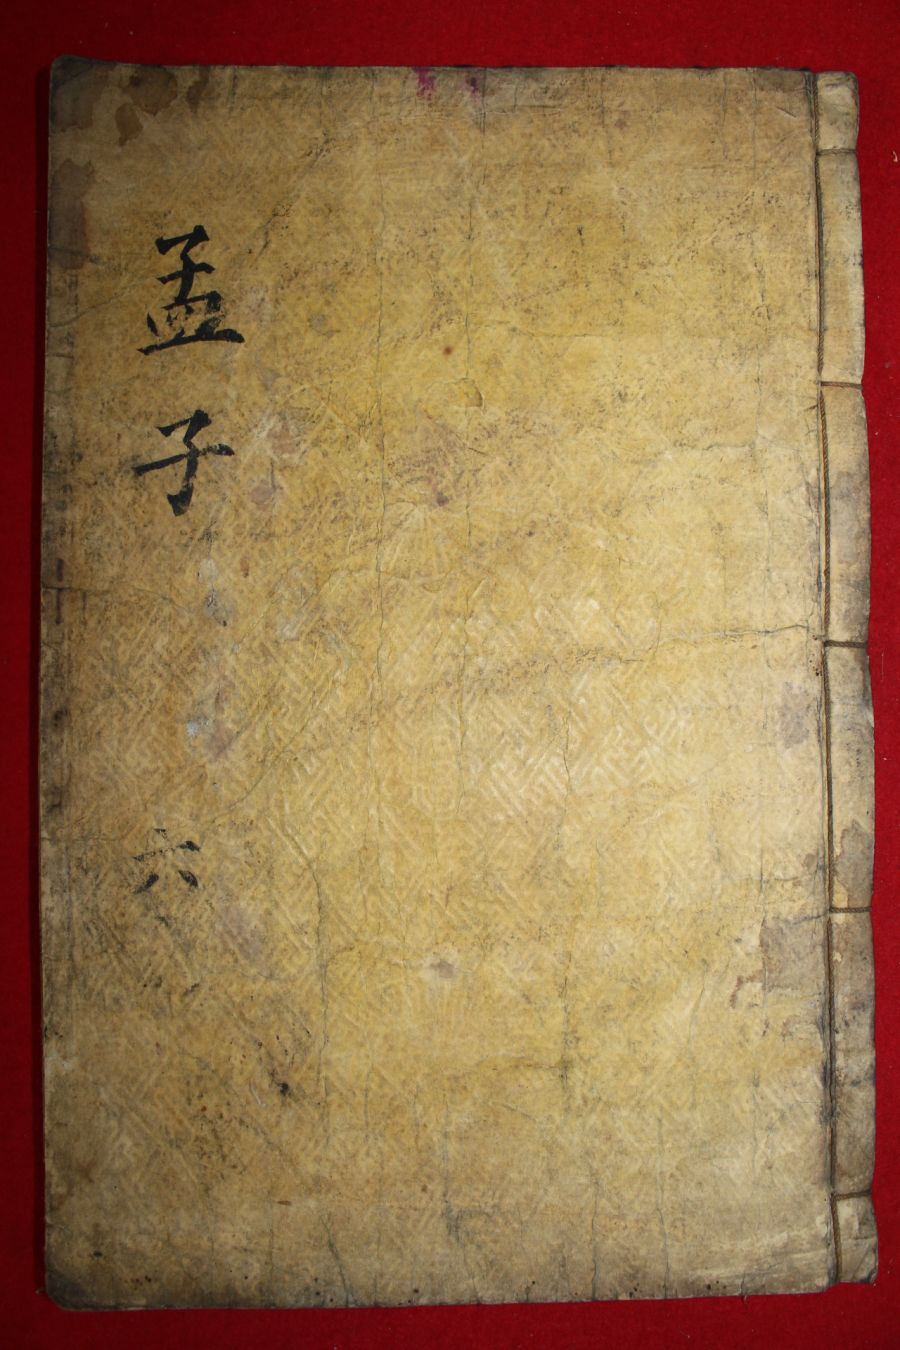 孟子
六